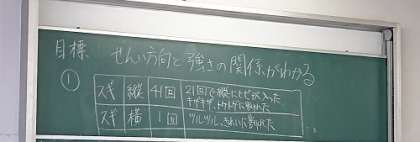 目標 せんい方向と強さの関係がわかる。
①
スギ 縦 41回 21回で縦にヒビが入った
ギザギザ、トゲトゲに割れた
スギ 横 1回 ツルツル、きれいに割れた